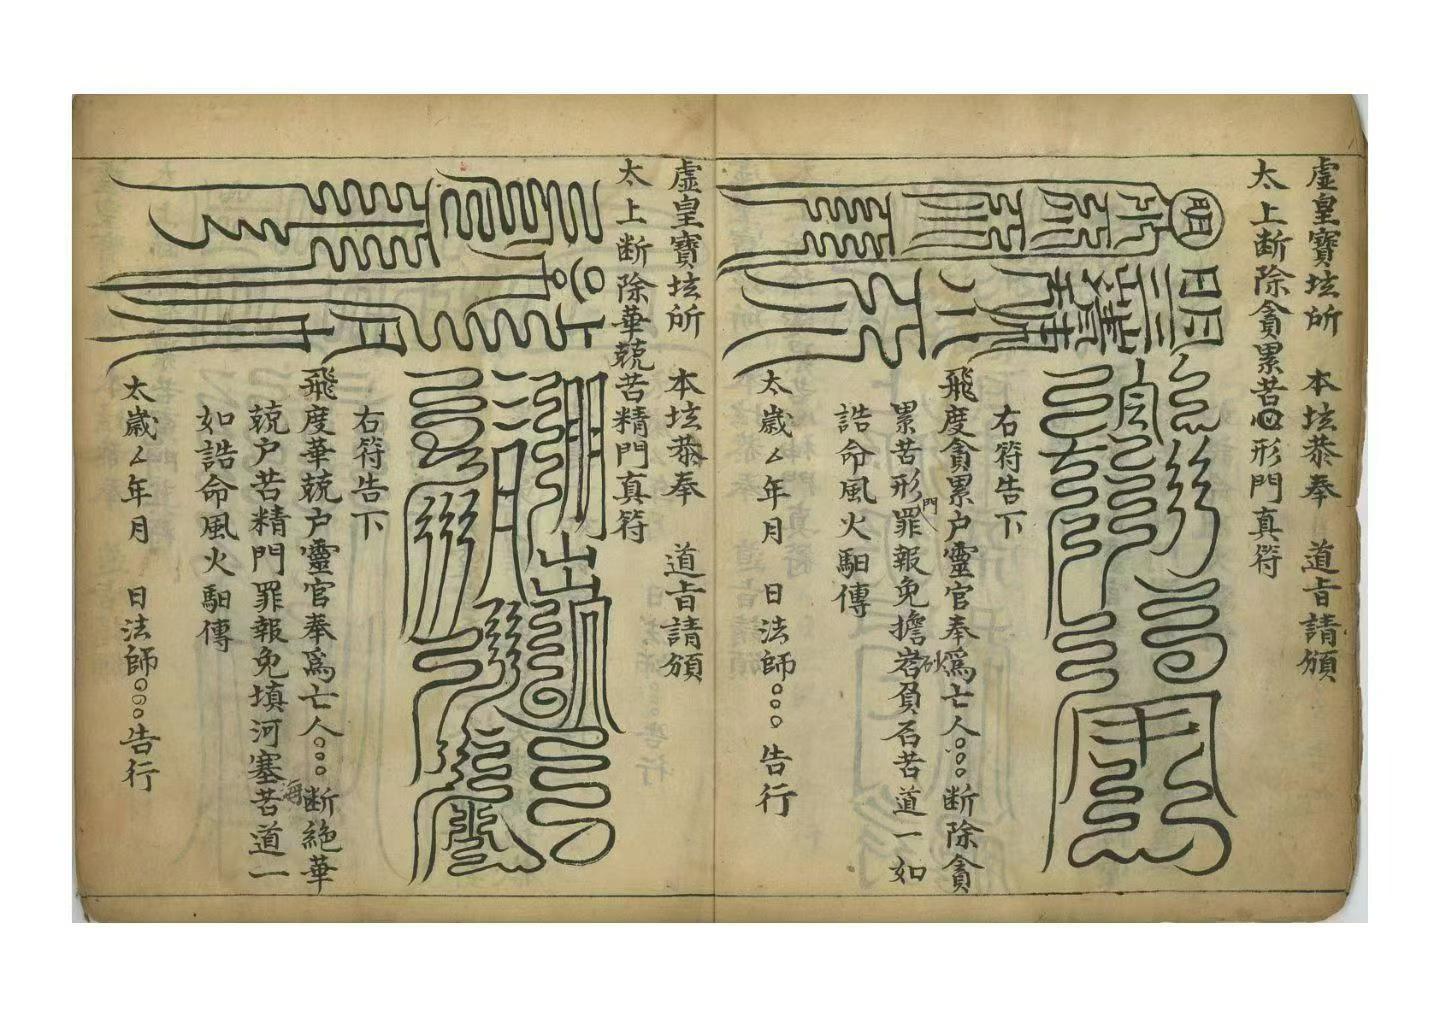 虛皇寶坛所 本坛恭奉 道旨請頒
太上断除貪累苦心形門真符
右符告下
飛度貪累户靈官奉爲亡人○○○断除貪
累苦形門罪報免擔砂負石苦道一如
誥命風火馹傳
太歲 年月 日法師○○○告行
虛皇寶坛所 本坛恭奉 道旨請頒
太上断除華兢苦精門真符
右符告下
飛度華兢户靈官奉爲亡人○○○断絶華
兢户苦精門罪報免填河塞海苦道一
如誥命風火馹傳
太歲 年月 日法師○○○告行